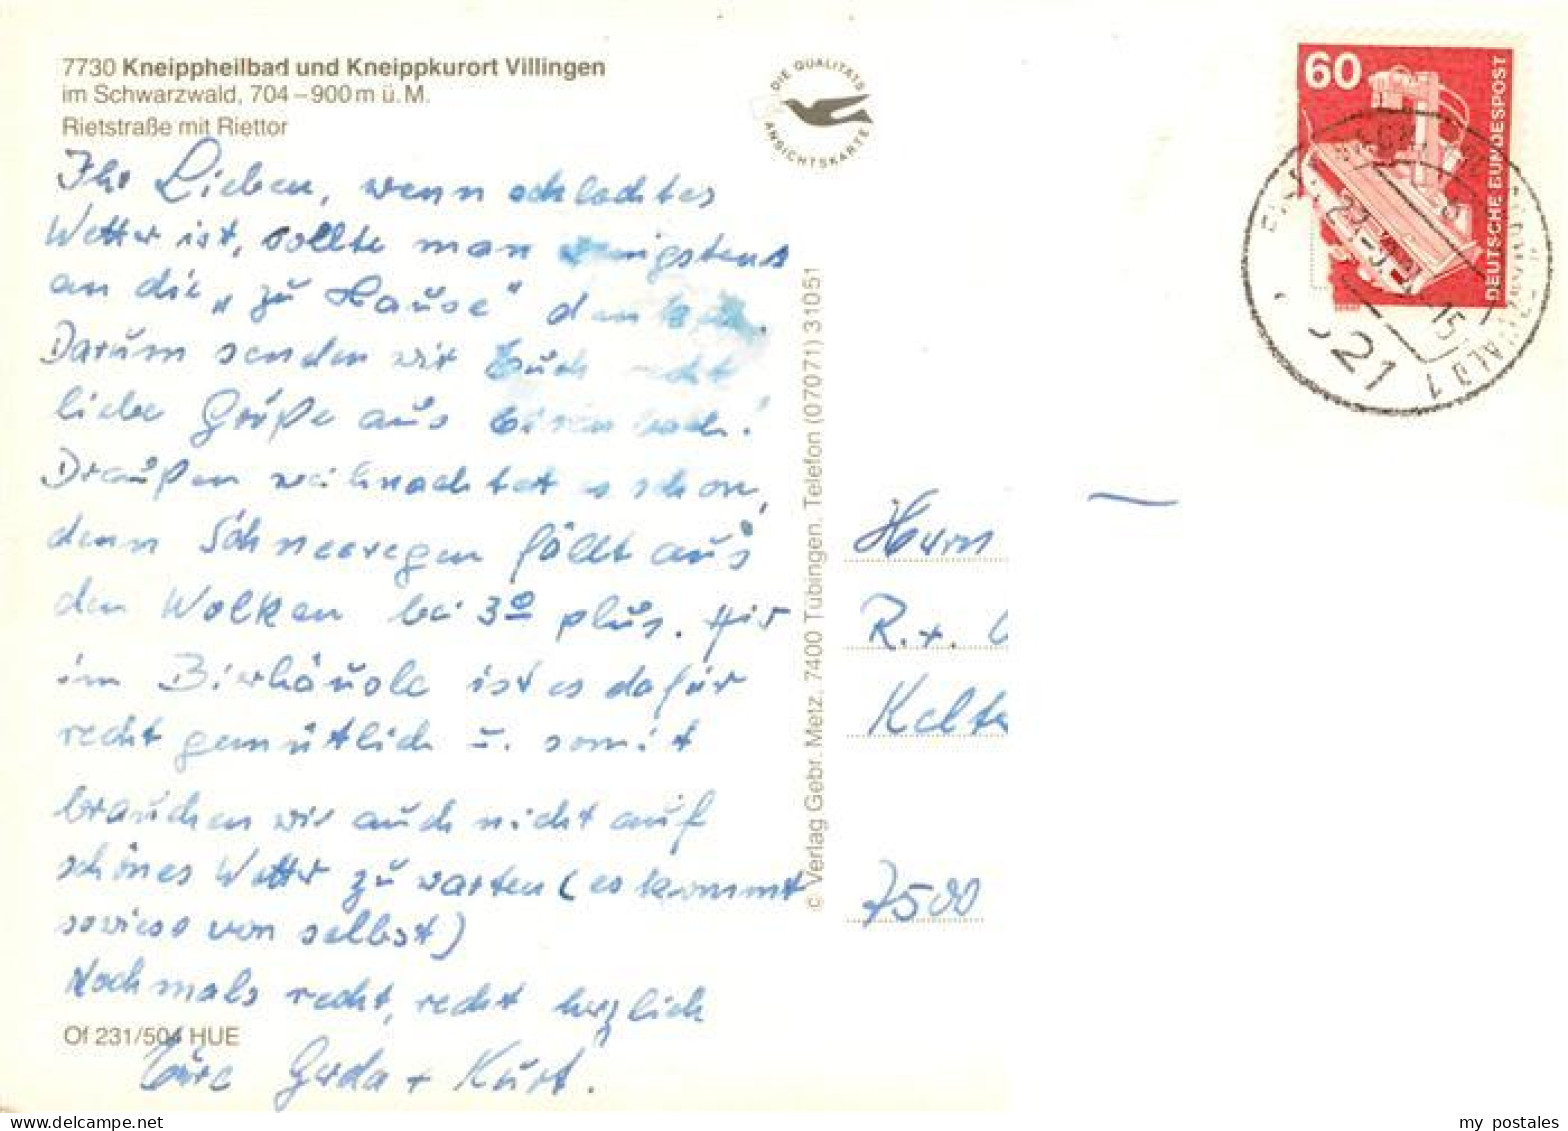 7730 Kneippheilbad und Kneippkurort Villingen
im Schwarzwald, 704–900 m ü. M.
Rietstraße mit Riettor
Ihr Lieben, wenn schlechtes
Wetter ist, sollte man wenigstens
an die „zu Hause" denken.
Darum senden wir Euch recht
liebe Grüße aus
Draußen weihnachtet es schon,
denn Schneeregen fällt aus
den Wolken bei 3º plus. Hier
im Bierhäusle ist es dafür
recht gemütlich u. somit
brauchen wir auch nicht auf
schönes Wetter zu warten (es kommt
sowieso von selbst)
Nochmals recht, recht herzlich
Eure Gerda + Kurt.
Of 231/504 HUE
DIE QUALITÄTS
ANSICHTSKARTE
© Verlag Gebr. Metz, 7400 Tübingen, Telefon (07071) 31051
60
DEUTSCHE BUNDESPOST
15
521
Herrn
R. +
Kelte
7500
my postales